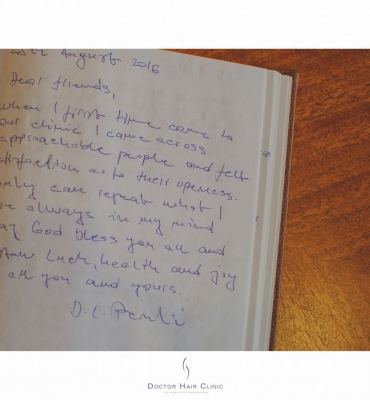 August 2016
Dear friends,
when I first time came to
our clinic I came across
approachable people and felt
satisfaction as to their openness.
only can repeat what I
ve always in my mind
ay God bless you all and
luck, health and joy
all you and yours.
DOCTOR HAIR CLINIC